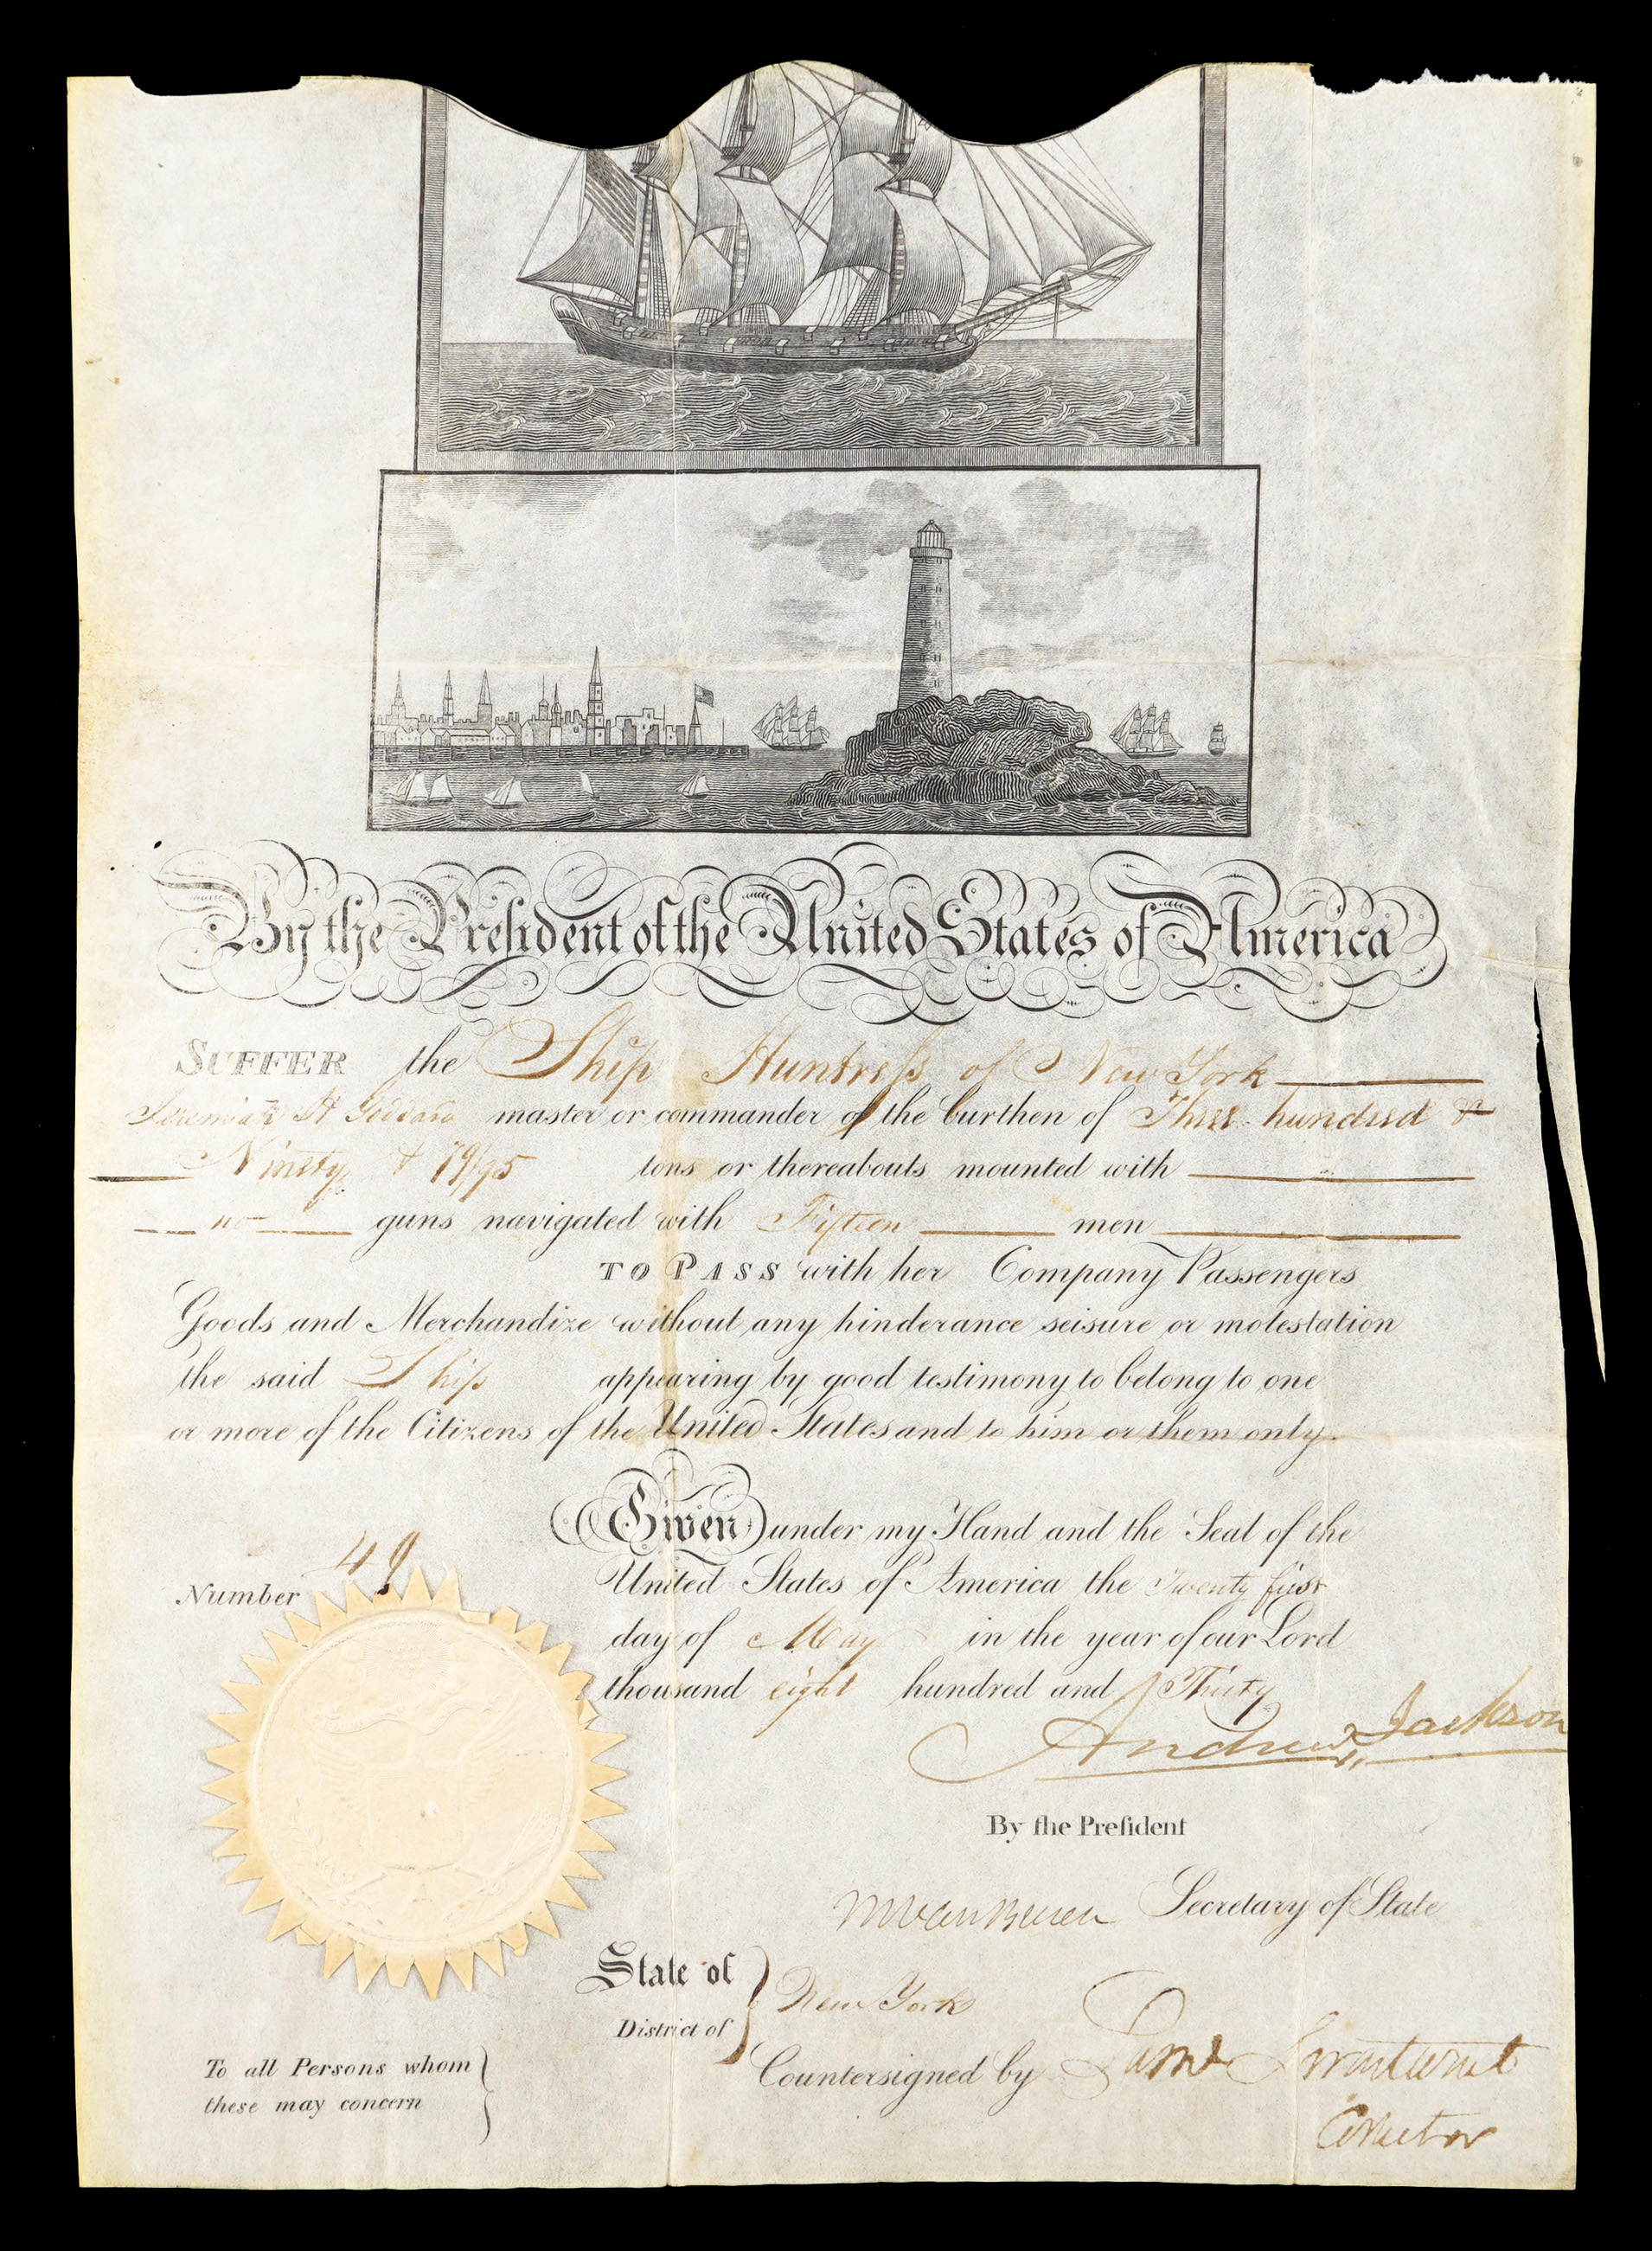 By the President of the United States of America
SUFFER the Ship Huntress of New York
Jeremiah H Goddard master or commander of the burthen of Three hundred &
Ninety & 79/95 tons or thereabouts mounted with
no guns navigated with Fifteen men
TO PASS with her Company Passengers
Goods and Merchandize without any hinderance seisure or molestation
the said Ship appearing by good testimony to belong to one
or more of the Citizens of the United States and to him or them only.
Given under my Hand and the Seal of the
Number 49
United States of America the Twenty first
day of May in the year of our Lord
thousand eight hundred and Thirty
Andrew Jackson
By the President
M Van Buren Secretary of State
State of
District of
New York
Countersigned by Saml Swartwout
Collector
To all Persons whom
these may concern